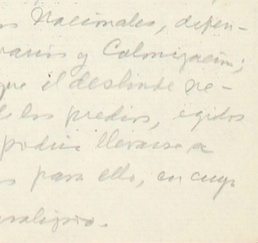 os Nacionales, depen-
rarios y Colonización;
que el deslinde re-
de los predios, ejidos
podía llevarse a
s para ello, en cuyo